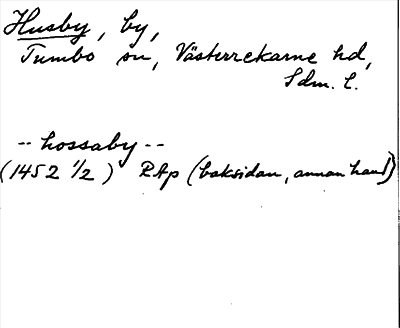 Husby, by,
Tumbo sn, Västerrekarne hd,
Sdm. l.
-- hossaby --
(1452 1/2) RAp (baksidan, annan hand)